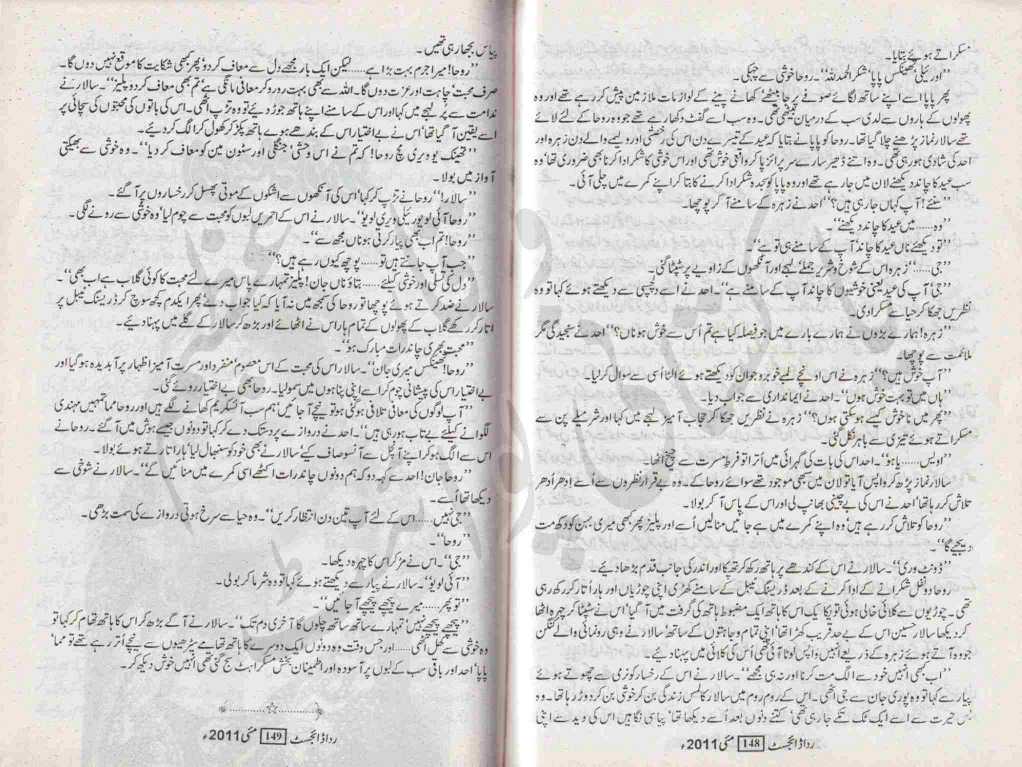 مسکراتے ہوئے بتایا۔
"اور نیکی تھینکس پاپا! شکر الحمدللہ"۔ روحا خوشی سے چہکی۔
پھر پاپا اسے اپنے ساتھ لگائے صوفے پر جا بیٹھے' کھانے پینے کے لوازمات ملازمین پیش کر رہے تھے اور وہ
پھولوں کے ہاروں سے لدی سب کے درمیان بیٹھی تھی۔ وہ سب اسے گفٹ دکھا رہے تھے جو وہ روحا کے لئے لائے
تھے سالار نماز پڑھنے چلا گیا تھا۔ روحا کو پاپا نے بتایا کہ عید کے تیسرے دن اس کی رخصتی اور ولیمے والے دن زہرہ اور
احد کی شادی ہو رہی تھی۔ وہ اتنے ڈھیر سارے سرپرائز پا کر واقعی خوش تھی اور اس خوشی کا شکر ادا کرنا بھی ضروری تھا' وہ
سب عید کا چاند دیکھنے لان میں جا رہے تھے اور وہ پاپا کو سجدہ شکر ادا کرنے کا بتا کر اپنے کمرے میں چلی آئی۔
"سنئے! آپ کہاں جا رہی ہیں؟" احد نے زہرہ کے سامنے آ کر پوچھا۔
"وہ...... میں عید کا چاند دیکھنے"۔
"تو دیکھئے ناں عید کا چاند آپ کے سامنے ہی تو ہے"۔
"جی......" زہرہ اس کے شوخ و شریر جملے' لہجے اور آنکھوں کے زاویے پر سٹپٹا گئی۔
"جی! آپ کی عید یعنی خوشیوں کا چاند آپ کے سامنے ہے"۔ احد نے اسے دلچسپی سے دیکھتے ہوئے کہا تو وہ
نظریں جھکا کر حیا سے مسکرا دی۔
"زہرہ! ہمارے بڑوں نے ہمارے بارے میں جو فیصلہ کیا ہے تم اُس سے خوش ہو ناں؟" احد نے سنجیدگی مگر
ملائمت سے پوچھا۔
"آپ خوش ہیں؟" زہرہ نے اس اونچے لمبے خوبرو جوان کو دیکھتے ہوئے الٹا اسی سے سوال کر لیا۔
"ہاں میں تو بہت خوش ہوں"۔ احد نے ایمانداری سے جواب دیا۔
"پھر میں ناخوش کیسے ہو سکتی ہوں؟" زہرہ نے نظریں جھکا کر حجاب آمیز لہجے میں کہا اور شرمیلے پن سے
مسکراتے ہوئے تیزی سے باہر نکل گئی۔
"اویس...... یاہو"۔ احد اس کی بات کی گہرائی میں اترا تو فرطِ مسرت سے چیخ اٹھا۔
سالار نماز پڑھ کر واپس آیا تو لان میں سبھی موجود تھے سوائے روحا کے۔ وہ بے قرار نظروں سے اُسے ادھر اُدھر
تلاش کر رہا تھا' احد نے اس کی بے چینی بھانپ لی اور اس کے پاس آ کر بولا۔
"روحا کو تلاش کر رہے ہیں' وہ اپنے کمرے میں ہے جائیں منا لیں اُسے اور پلیز پھر کبھی میری بہن کو دکھ مت
دیجیے گا"۔
"ڈونٹ وری"۔ سالار نے اس کے کندھے پر ہاتھ رکھ کر تھپکا اور اندر کی جانب قدم بڑھا دیئے۔
روحا دو نفل شکرانے کے ادا کرنے کے بعد ڈریسنگ ٹیبل کے سامنے کھڑی اپنی چوڑیاں اور ہار اُتار کر رکھ رہی
تھی۔ چوڑیوں سے کلائی خالی ہوئی تو یکا یک اس کا ہاتھ ایک مضبوط ہاتھ کی گرفت میں آ گیا' اس نے سٹپٹا کر چہرہ اٹھا
کر دیکھا سالار حسین اس کے بے حد قریب کھڑا تھا' اپنی تمام وجاہتوں کے ساتھ سالار نے وہی رونمائی والے کنگن
جو وہ آتے ہوئے زہرہ کے ذریعے انہیں واپس لوٹا آئی تھی اُس کی کلائی میں پہنا دیئے۔
"اب کبھی انہیں خود سے الگ مت کرنا اور نہ ہی مجھے"۔ سالار نے اس کے رخسار کو نرمی سے چھوتے ہوئے
پیار سے کہا تو وہ پوری جان سے جی اٹھی۔ اس کے روم روم میں سالار کا لمس زندگی بن کر خوشی بن کر دوڑ رہا تھا۔ وہ
حیرت سے اسے ایک ٹک تکے جا رہی تھی' کتنے دنوں بعد اُسے دیکھا تھا' پیاسی نگاہیں اس کی دید سے اپنی
رداڈائجسٹ 148 مئی 2011ء
پیاس بجھا رہی تھیں۔
"روحا! میرا جرم بہت بڑا ہے...... لیکن ایک بار مجھے دل سے معاف کر دو' پھر کبھی شکایت کا موقع نہیں دوں گا۔
صرف محبت' چاہت اور عزت دوں گا۔ اللہ سے بھی بہت رو رو کر معافی مانگی ہے' تم بھی معاف کر دو پلیز"۔ سالار نے
ندامت سے پر لہجے میں کہا اور اس کے سامنے اپنے ہاتھ جوڑ دیئے تو وہ تڑپ اٹھی۔ اس کی باتوں کی محبتوں کی سچائی پر
اسے یقین آ گیا تھا' اس نے بے اختیار اس کے بندھے ہوئے ہاتھ پکڑ کر کھول کر الگ کر دیئے۔
"تھینک یو ویری مچ روحا! کہ تم نے اس وحشی' جنگلی اور سٹون مین کو معاف کر دیا"۔ وہ خوشی سے بھیگتی
آواز میں بولا۔
"سالار!" روحا نے تڑپ کر کہا' اس کی آنکھوں سے اشکوں کے موتی پھسل کر رخساروں پر آ گئے۔
"روحا آئی لو یو ریئلی ویری لو یو"۔ سالار نے اس کے احمریں لبوں کو محبت سے چوم لیا' وہ خوشی سے رونے لگی۔
"روحا! تم اب بھی پیار کرتی ہو ناں مجھ سے"۔
"جب آپ جانتے ہیں تو...... پوچھ کیوں رہے ہیں؟"
"دل کی تسلی اور خوشی کیلئے...... بتاؤ ناں جان! پلیز تمہارے پاس میرے لئے محبت کا کوئی گلاب ہے اب بھی"۔
سالار نے ضد کرتے ہوئے پوچھا تو روحا کی سمجھ میں نہ آیا کہ کیا جواب دے' پھر ایکدم کچھ سوچ کر ڈریسنگ ٹیبل پر
اتار کر رکھے گلاب کے پھولوں کے تمام ہار اس نے اٹھائے اور بڑھ کر سالار کے گلے میں پہنا دیئے۔
"محبت بھری چاند رات مبارک ہو"۔
"روحا! تھینکس میری جان"۔ سالار اس کی محبت کے اس معصوم' منفرد اور مسرت آمیز اظہار پر آبدیدہ ہو گیا اور
بے اختیار اس کی پیشانی چوم کر اسے اپنی پناہوں میں سمو لیا۔ روحا بھی بے اختیار رو دیئے گئی۔
"آپ لوگوں کی معافی تلافی ہو گئی ہو تو نیچے آ جائیں' ہم سب آئسکریم کھانے لگے ہیں اور روحا مما تمہیں مہندی
لگوانے کیلئے بے تاب ہو رہی ہیں"۔ احد نے دروازے پر دستک دے کر کہا تو دونوں جیسے ہوش میں آ گئے۔ روحا نے
اس سے الگ ہو کر اپنے آنچل سے آنسو صاف کیئے سالار نے بھی خود کو سنبھال لیا' ہار اتارتے ہوئے بولا۔
"روحا جان! احد سے کہہ دو کہ ہم دونوں چاند رات اکٹھے اسی کمرے میں منائیں گے"۔ سالار نے شوخی سے
دیکھا تھا اُسے۔
"جی نہیں...... اس کے لئے آپ تین دن انتظار کریں"۔ وہ حیا سے سرخ ہوتی دروازے کی سمت بڑھی۔
"روحا"۔
"جی"۔ اس نے مڑ کر اس کا چہرہ دیکھا۔
"آئی لو یو"۔ سالار نے پیار سے دیکھتے ہوئے کہا تو وہ شرما کر بولی۔
"تو پھر...... میرے پیچھے پیچھے آ جائیں"۔
"پیچھے پیچھے نہیں' تمہارے ساتھ ساتھ چلوں گا آخری دم تک"۔ سالار نے آگے بڑھ کر اس کا ہاتھ تھام کر کہا تو
وہ خوشی سے کھل اٹھی...... اور جس وقت وہ دونوں ایک دوسرے کا ہاتھ تھامے سیڑھیوں سے نیچے اُتر رہے تھے تو مما'
پاپا' احد اور باقی سب کے لبوں پر آسودہ اور اطمینان بخش مسکراہٹ سج گئی تھی انہیں خوش دیکھ کر۔
رداڈائجسٹ 149 مئی 2011ء